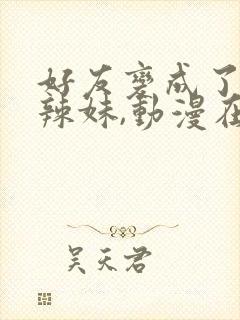 好友變成了
辣妹,動漫在
吴天君